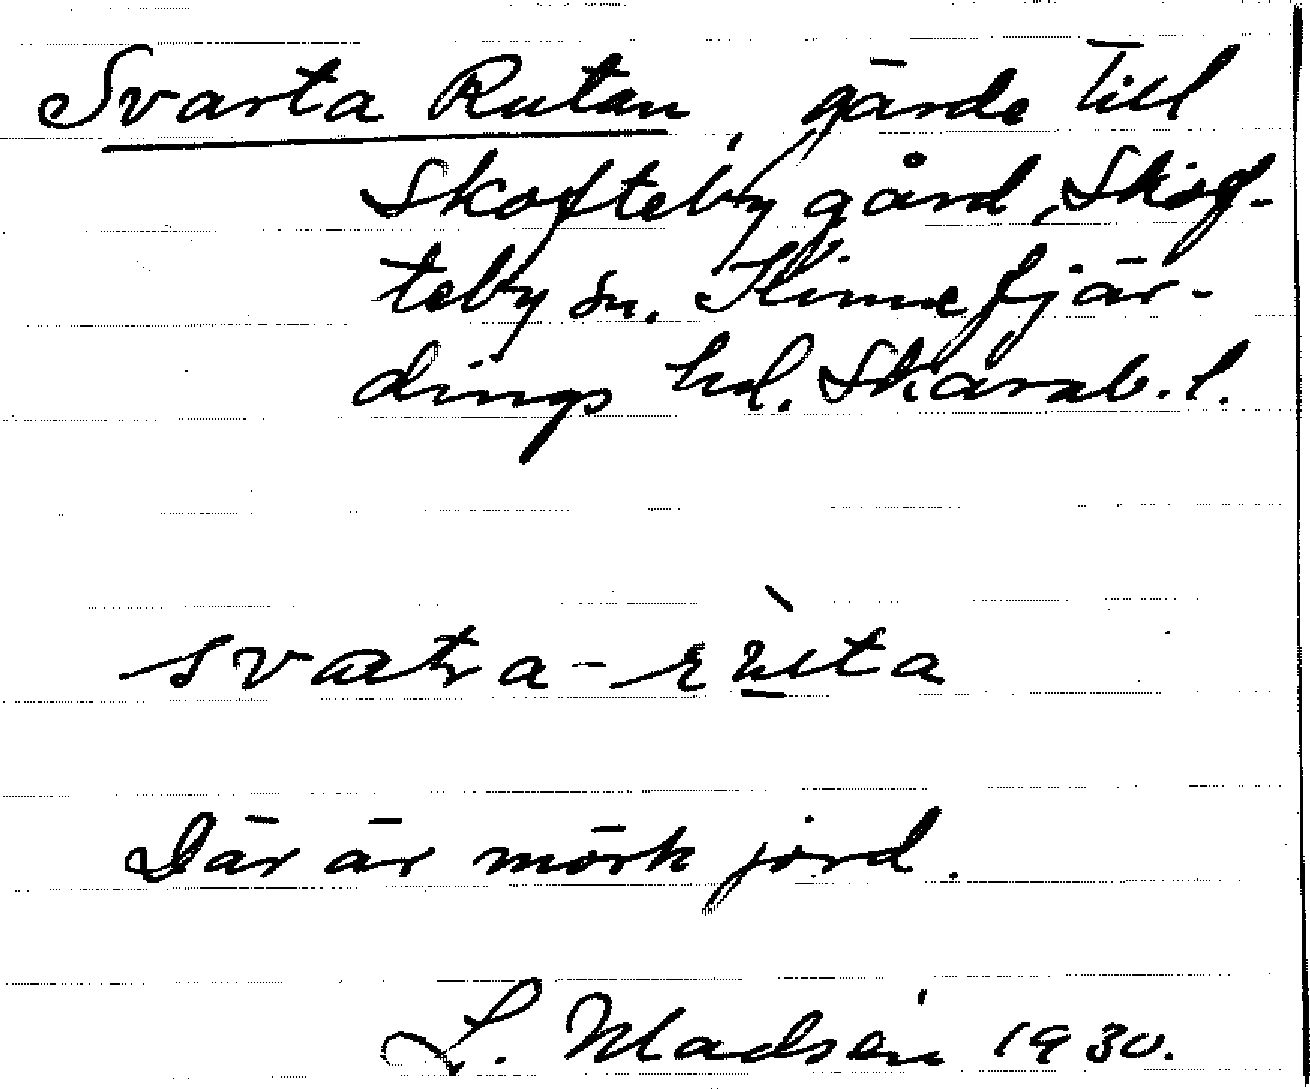 Svarta Rutan, gärde till
Skofteby gård, Skof-
teby sn. Kinnefjär-
dings hd. Skarab. l.
svatra-rùta
Där är mörk jord.
L. Madsén 1930.